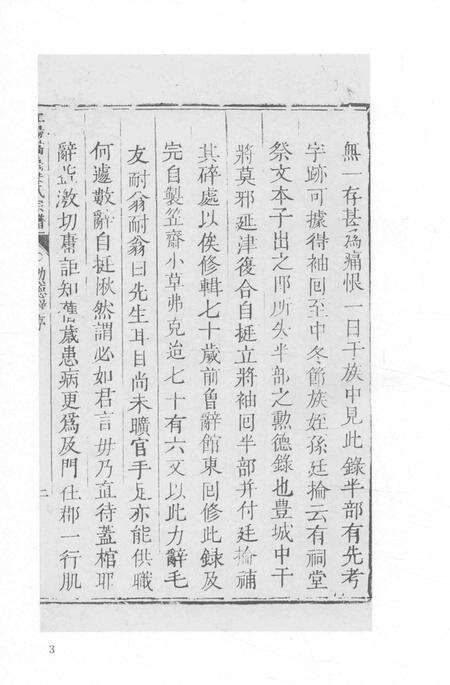 無一存甚爲痛恨一日于族中見此錄半部有先考
字跡可據得袖回至中冬節族姪孫廷掄云有祠堂
祭文本子出之即所失半部之勲德錄也豊城中干
將莫邪延津復合自挺立將袖回半部并付廷掄補
其碎處以俟修輯七十歲前曾辭館東回修此錄及
完自製笠齋小草弗克迨七十有六又以此力辭毛
友耐翁耐翁曰先生耳目尚未曠官手足亦能供職
何遽數辭自挺愀然謂必如君言毋乃直待蓋棺耶
辭益激切庸詎知舊歲患病更爲及門仕郡一行肌
序
二
3